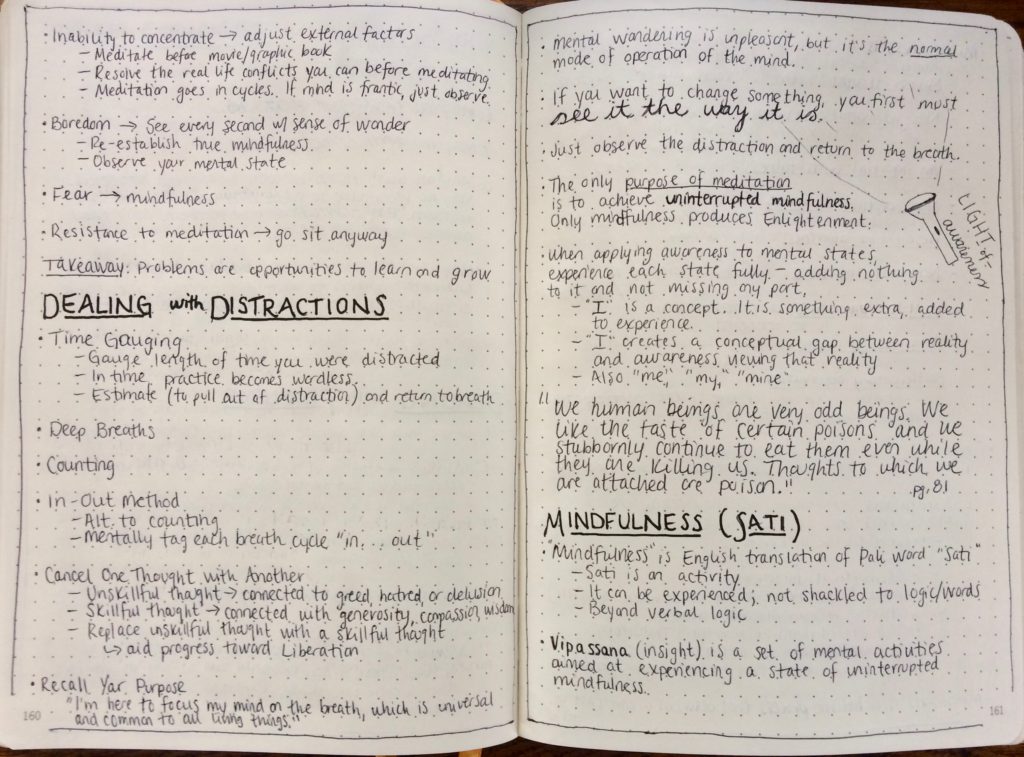 · Inability to concentrate → adjust external factors
– Meditate before movie/graphic book
– Resolve the real life conflicts you can before meditating
– Meditation goes in cycles. If mind is frantic, just observe.
· Boredom → See every second w/ sense of wonder
– Re-establish true mindfulness.
– Observe your mental state
· Fear → mindfulness
· Resistance to meditation → go sit anyway
Takeaway: Problems are opportunities to learn and grow
DEALING with DISTRACTIONS
· Time Gauging
– Gauge length of time you were distracted
– In time, practice becomes wordless
– Estimate (to pull out of distraction) and return to breath
· Deep Breaths
· Counting
· In-Out Method
– Alt to counting
– Mentally tag each breath cycle "in... out"
· Cancel One Thought with Another
– Unskillful thought → connected to greed, hatred, or delusion
– Skillful thought → connected with generosity, compassion, wisdom
– Replace unskillful thought with a skillful thought
↳ aid progress toward Liberation
· Recall Your Purpose
"I'm here to focus my mind on the breath, which is universal
and common to all living things."
160
· mental wandering is unpleasant, but it's the normal
mode of operation of the mind.
· If you want to change something, you first must
see it the way it is.
· Just observe the distraction and return to the breath.
· The only purpose of meditation
is to achieve uninterrupted mindfulness.
Only mindfulness produces Enlightenment.
LIGHT of
awareness
· When applying awareness to mental states,
experience each state fully – adding nothing
to it and not missing any part.
– "I" is a concept. It is something extra, added
to experience.
– "I" creates a conceptual gap between reality
and awareness viewing that reality
– Also "me," "my," "mine"
"We human beings are very odd beings. We
like the taste of certain poisons and we
stubbornly continue to eat them even while
they are killing us. Thoughts to which we
are attached are poison."
pg. 81
MINDFULNESS (SATI)
· "Mindfulness" is English translation of Pali word "Sati"
– Sati is an activity
– It can be experienced; not shackled to logic/words
– Beyond verbal logic
· Vipassana (insight) is a set of mental activities
aimed at experiencing a state of uninterrupted
mindfulness.
161